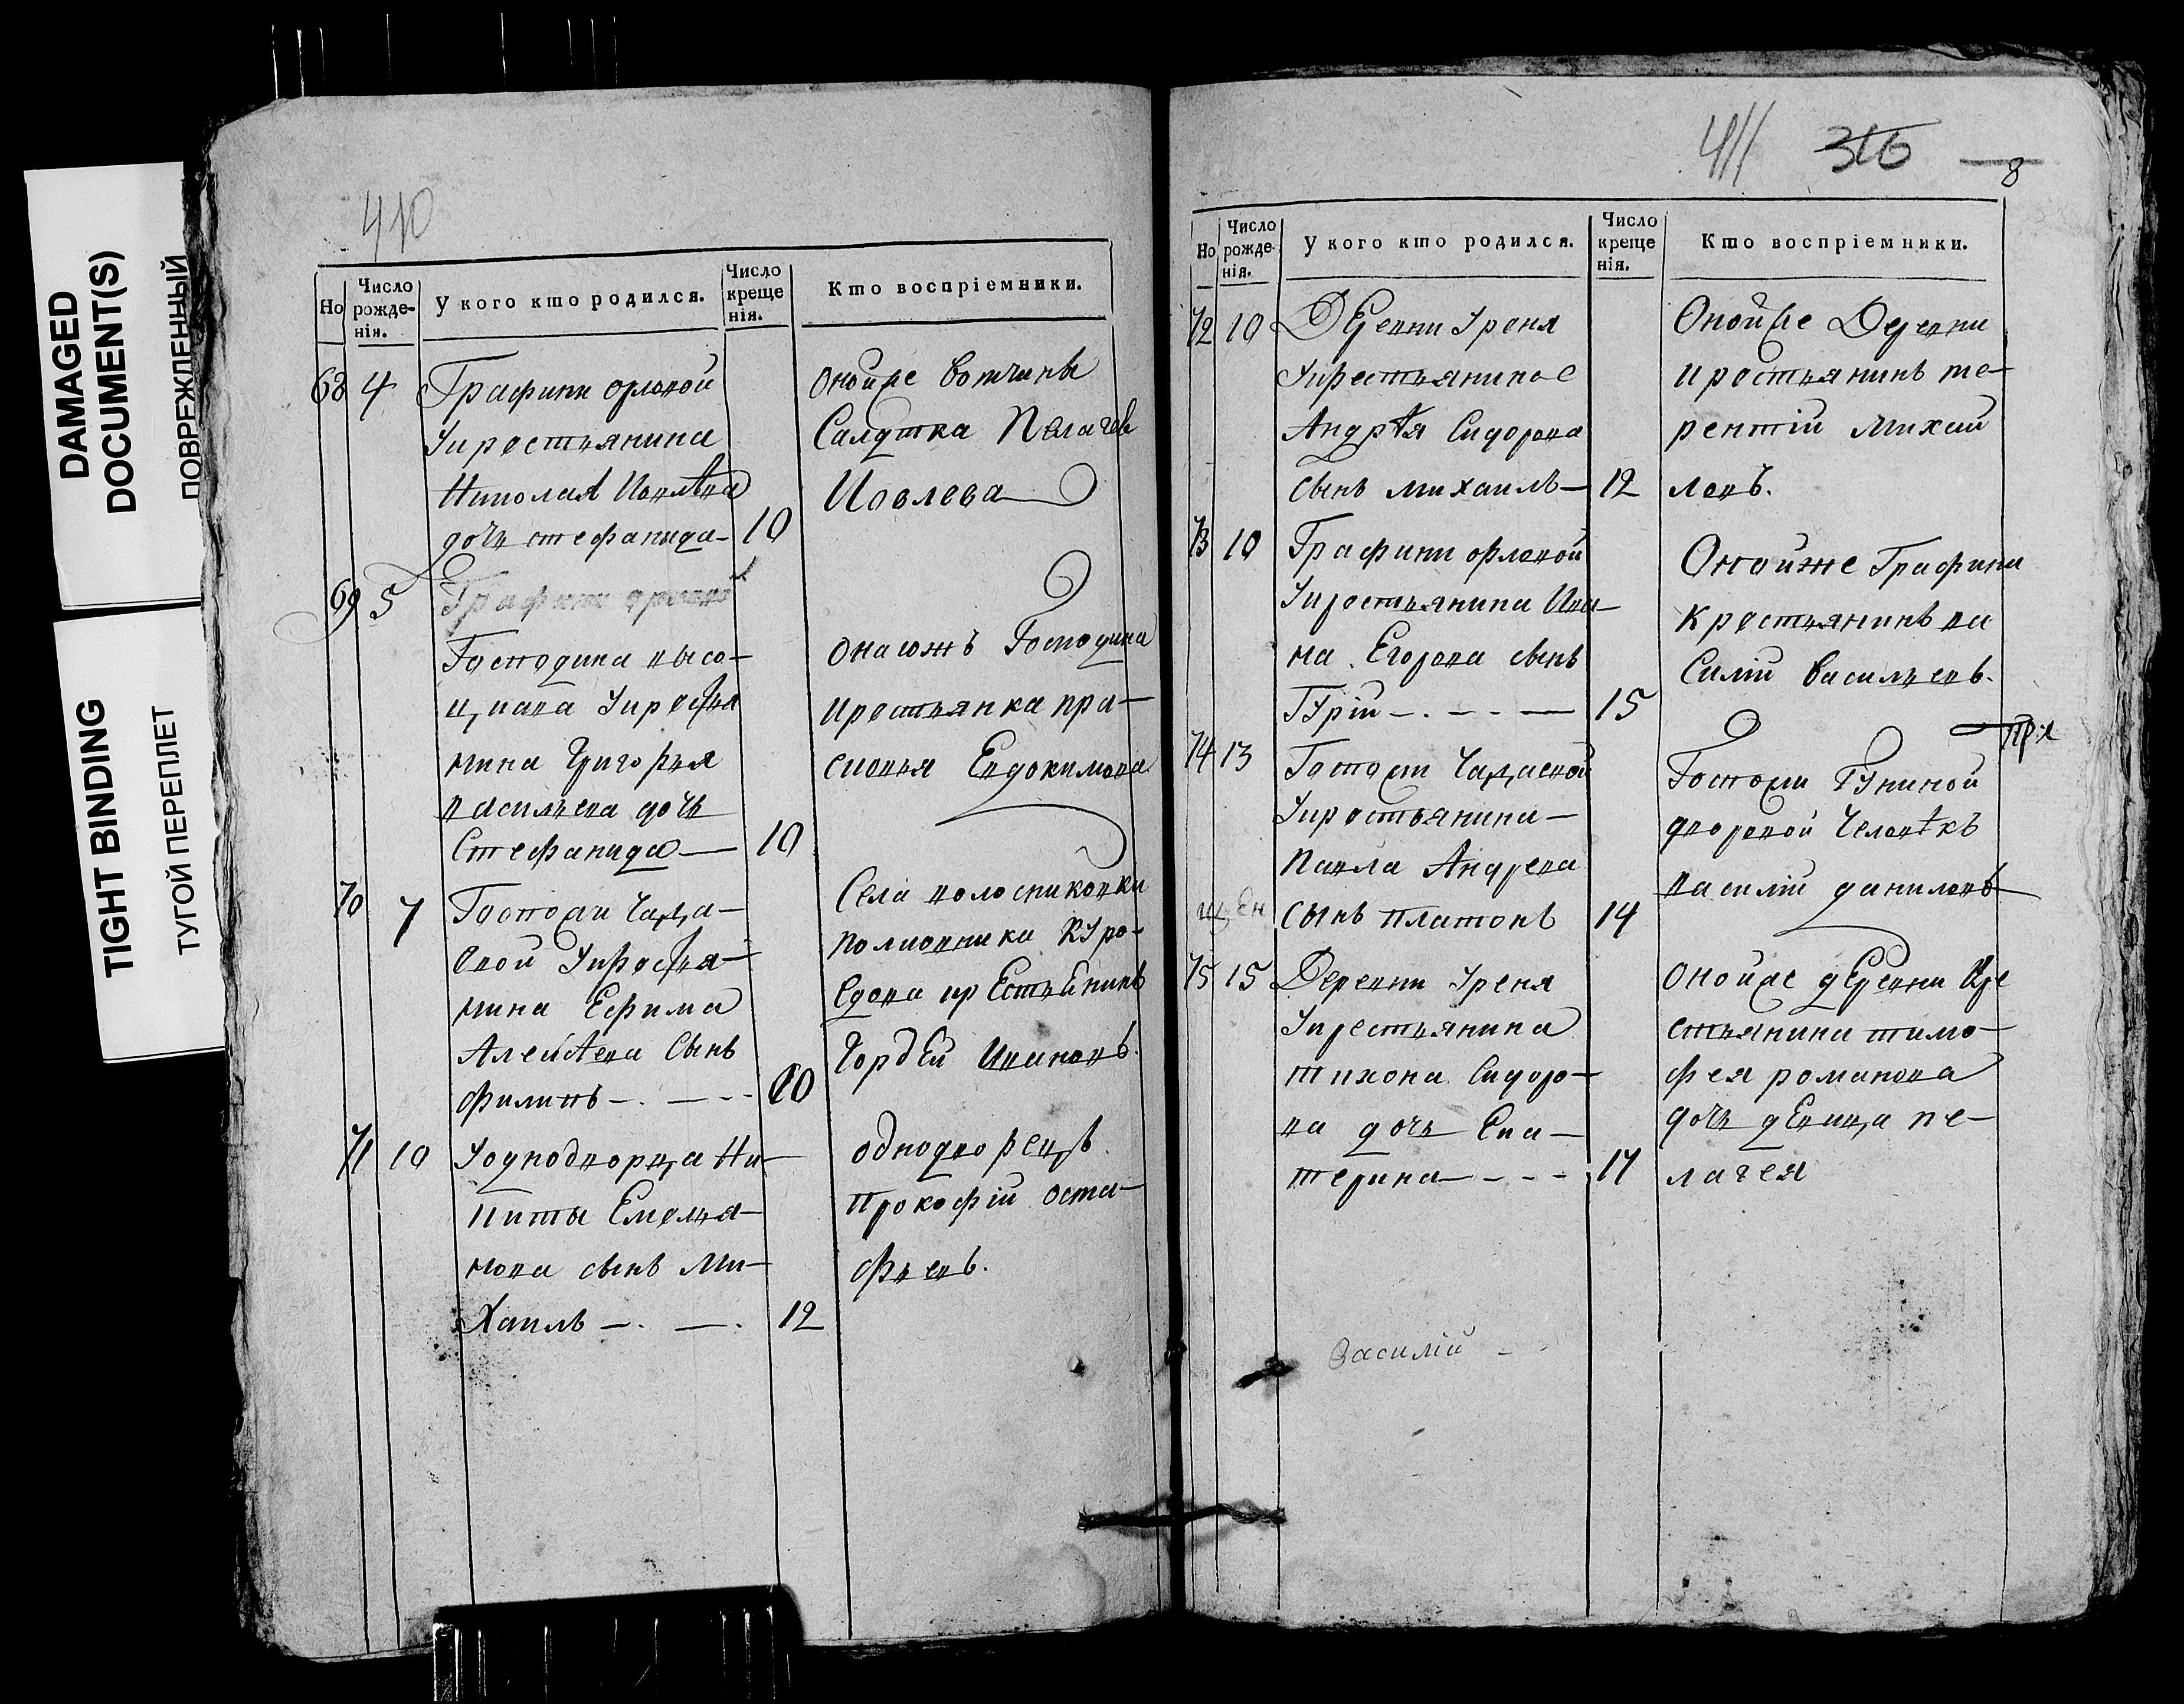 DAMAGED
DOCUMENT(S)
ПОВРЕЖДЕННЫЙ
TIGHT BINDING
ТУГОЙ ПЕРЕПЛЕТ
410
Но
Число рожде-нія.
У кого кто родился.
Число креще нія.
Кто воспріемники.
68 4 Графини орловой
Укрестьянина
Николая Иовлева
дочь стефанида 10
Онойже вотчины
Салдатка Пелагея
Иовлева
69 5 Графини орловой
Господина высо-
цкава Укрестья
нина Григорья
васильева дочь
Стефанида 10
онагожъ Господина
крестьянка пра-
сковья Евдокимова
70 7 Госпожи Чада-
евой Укрестья-
нина Ефима
Алексѣева Сынъ
филипъ 10
Села колосниковки
полковника Куро-
едова крестьянинъ
Гордей Ивановъ.
71 10 Уоднодворца Ни-
киты Емелья-
нова сынъ Ми-
хаилъ 12
однодворецъ
Прокофій оста-
фьевъ.
411 316 8
Но
Число рожде-нія.
У кого кто родился.
Число креще нія.
Кто воспріемники.
72 10 Деревни Уреня
Укрестьянина
Андрѣя Сидорова
сынъ михаилъ 12
Онойже Деревни
крестьянинъ те-
рентій михай
ловъ.
73 10 Графини орловой
Укрестьянина Яки-
ма Егорова сынъ
Гурій 15
Онойже Графини
крестьянинъ ва
силій васильевъ.
74 13 Госпожи Чадаевой
Укрестьянина
Павла Андреева
сынъ платонъ 14
Госпожи Гуниной
дворовой Человѣкъ
василій даниловъ
75 15 Деревни Уреня
Укрестьянина
тихона Сидоро-
ва дочь Ека-
терина 17
онойже деревни Кре
стьянина тимо-
фея романова
дочь девица пе-
лагея
Василій